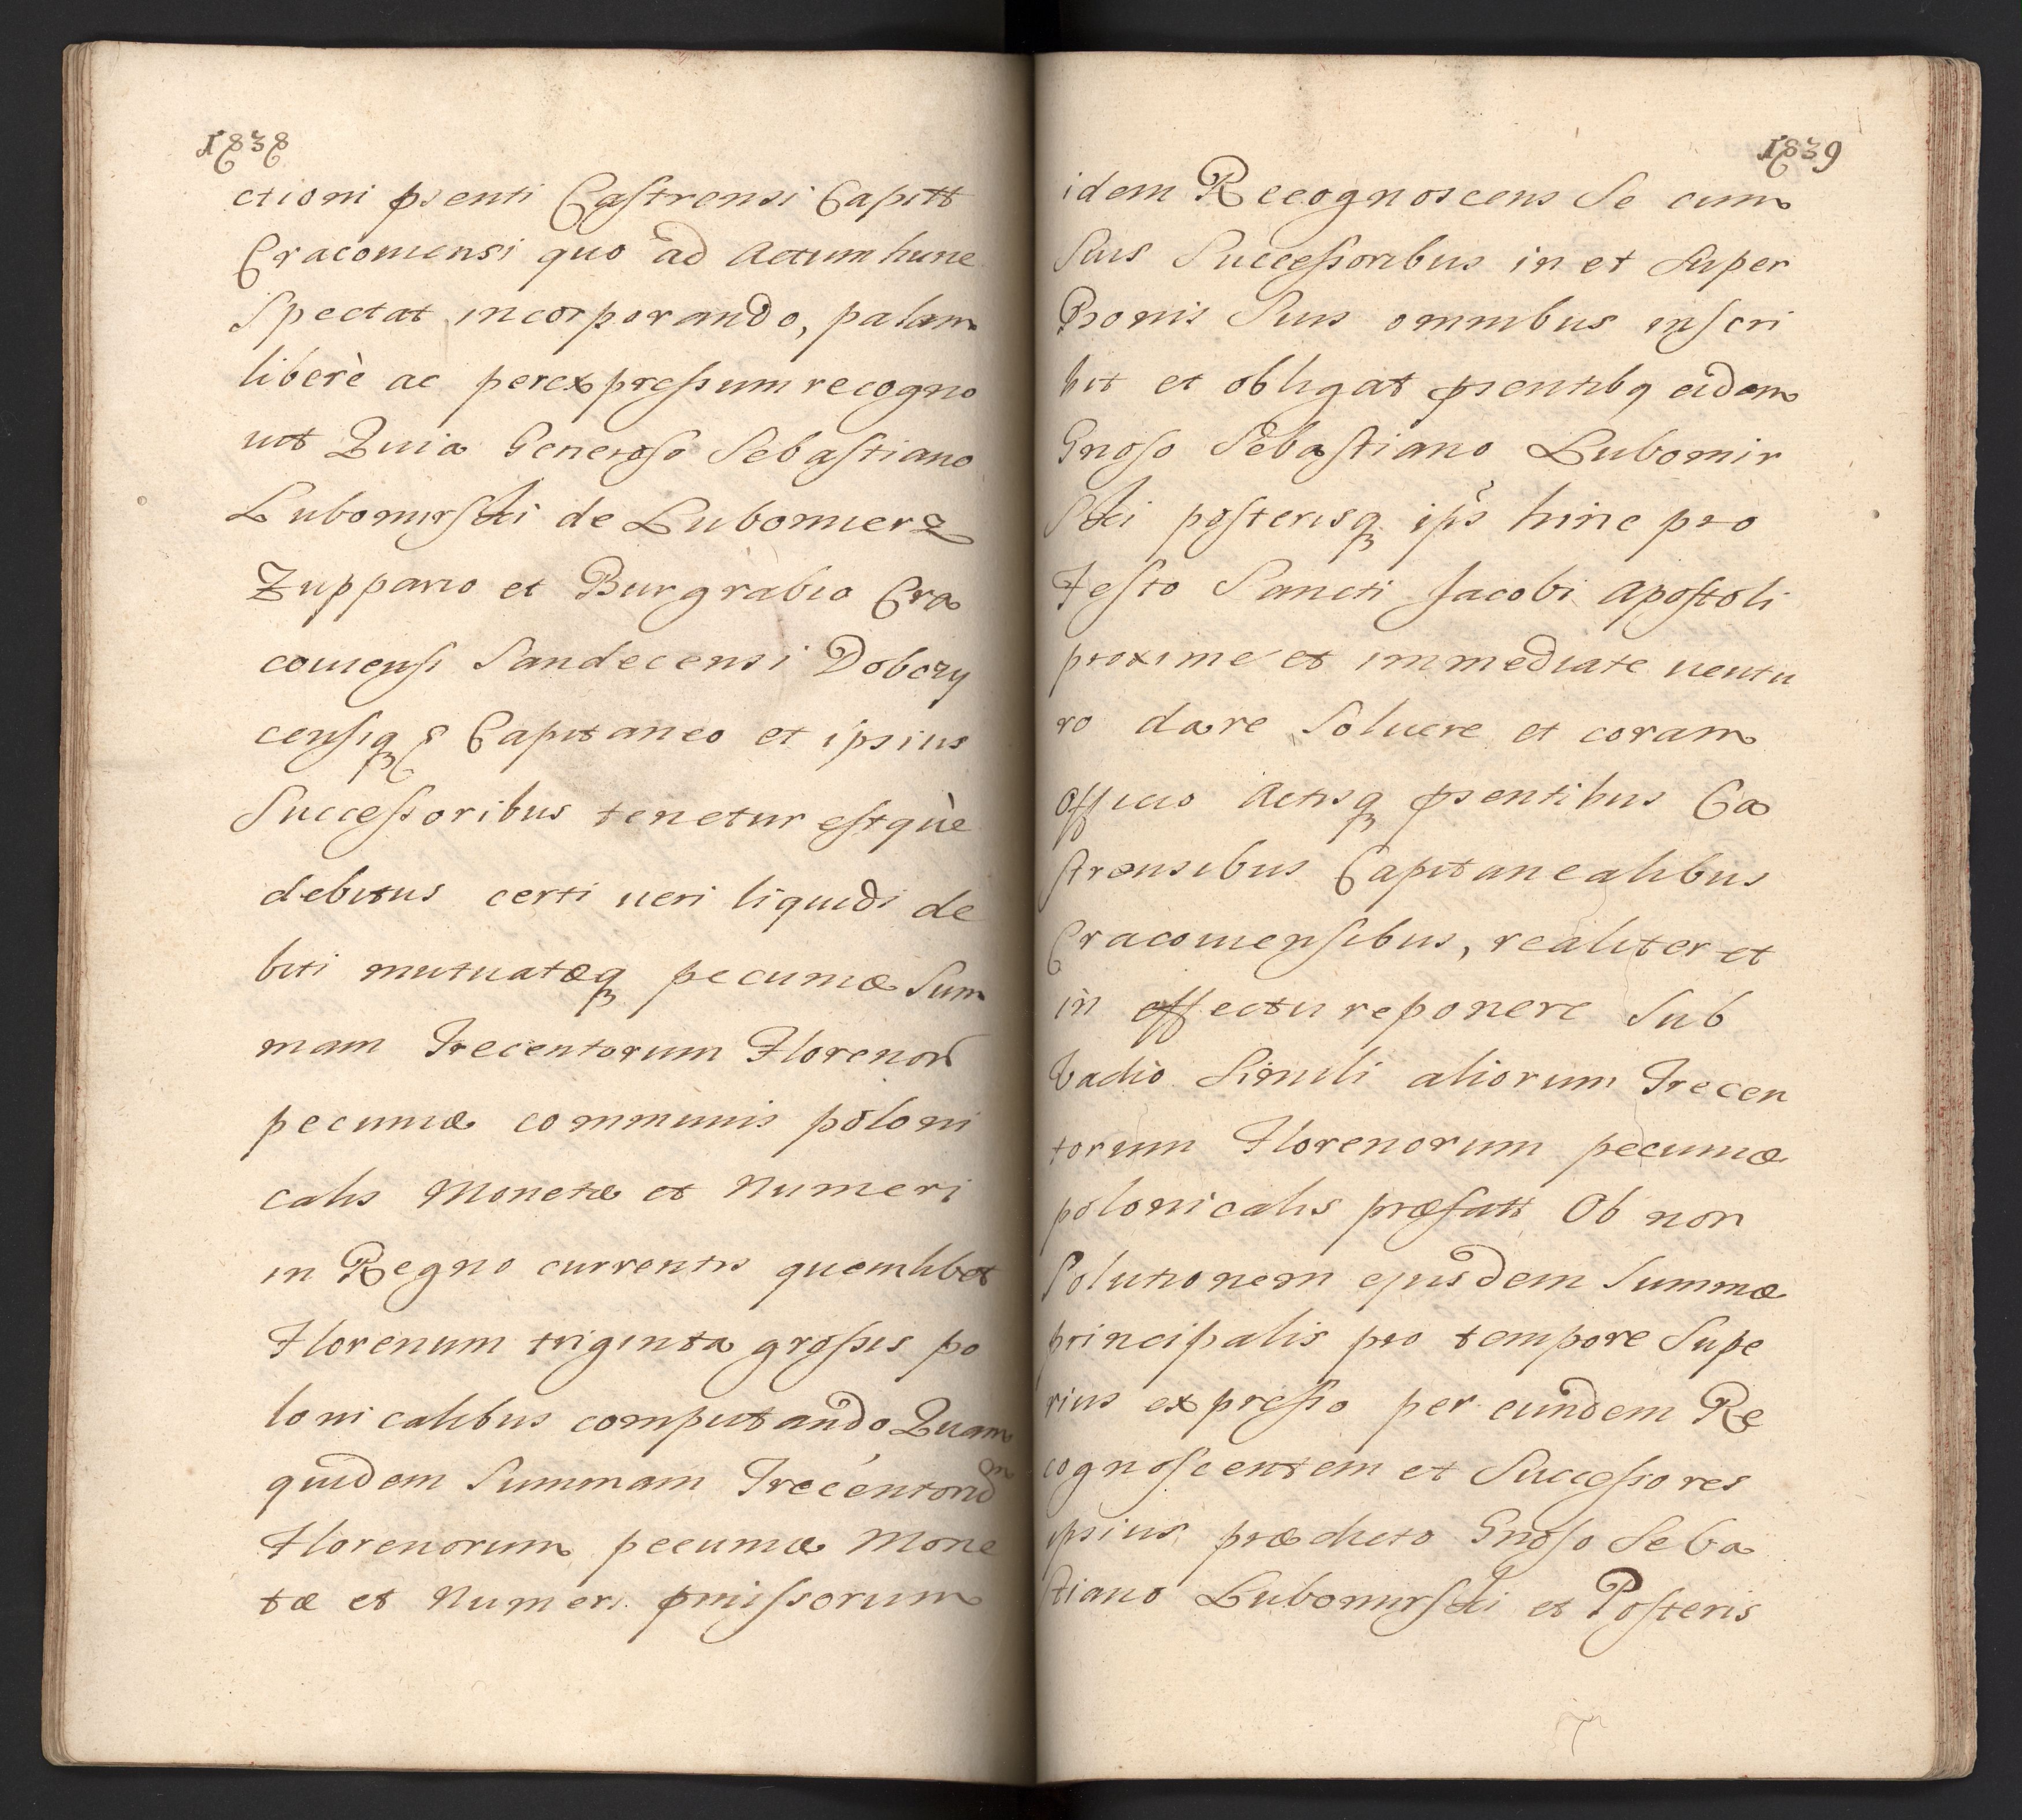 1838
ctioni pſenti Caſtrensi Capitt
Cracouiensi quo ad Actum hunc
Spectat incorporando, palam
liberè ac perexpreſsum recogno
uit Quia Generoſo Sebaſtiano
Lubomirſki de Lubomierz
Zuppario et Burgrabio Cra
couienſi Sandecensi Dobczy
cenſiqꝫ Capitaneo et ipsius
Succeſsoribus tenetur eſtquè
debitus certi ueri liquidi de
biti mutuatæqꝫ pecuniæ Sum
mam Trecentorum Florenor
pecuniæ communis poloni
calis Monetæ et Numeri
in Regno currentis quemlibet
Florenum triginta groſsis po
lonicalibus computando Quam
quidem Summam Trecentorum
Florenorum pecuniæ Mone
tæ et Numeri pmiſsorum
1839
idem Recognoscens Se cum
Suis Succeſsoribus in et Super
Bonis Suis omnibus inſcri
bit et obligat pſentibq eidem
Gnoſo Sebaſtiano Lubomir
Ski poſterisqꝫ ips hinc pro
Feſto Sancti Jacobi Apoſtoli
proxime et immediate uentu
ro dare Soluere et coram
officio Actisqꝫ pſentibus Ca
ſtrensibus Capitanealibus
Cracouienſibus, realiter et
in effectu reponere Sub
Vadio Simili aliorum Trecen
torum Florenorum pecuniæ
polonicalis præfatt Ob non
Solutionem ejusdem Summæ
principalis pro tempore Supe
rius expreſso per eundem Re
cognoſcentem et Succeſsores
ipsius prædicto Gnoſo Seba
ſtiano Lubomirſki et Poſteris